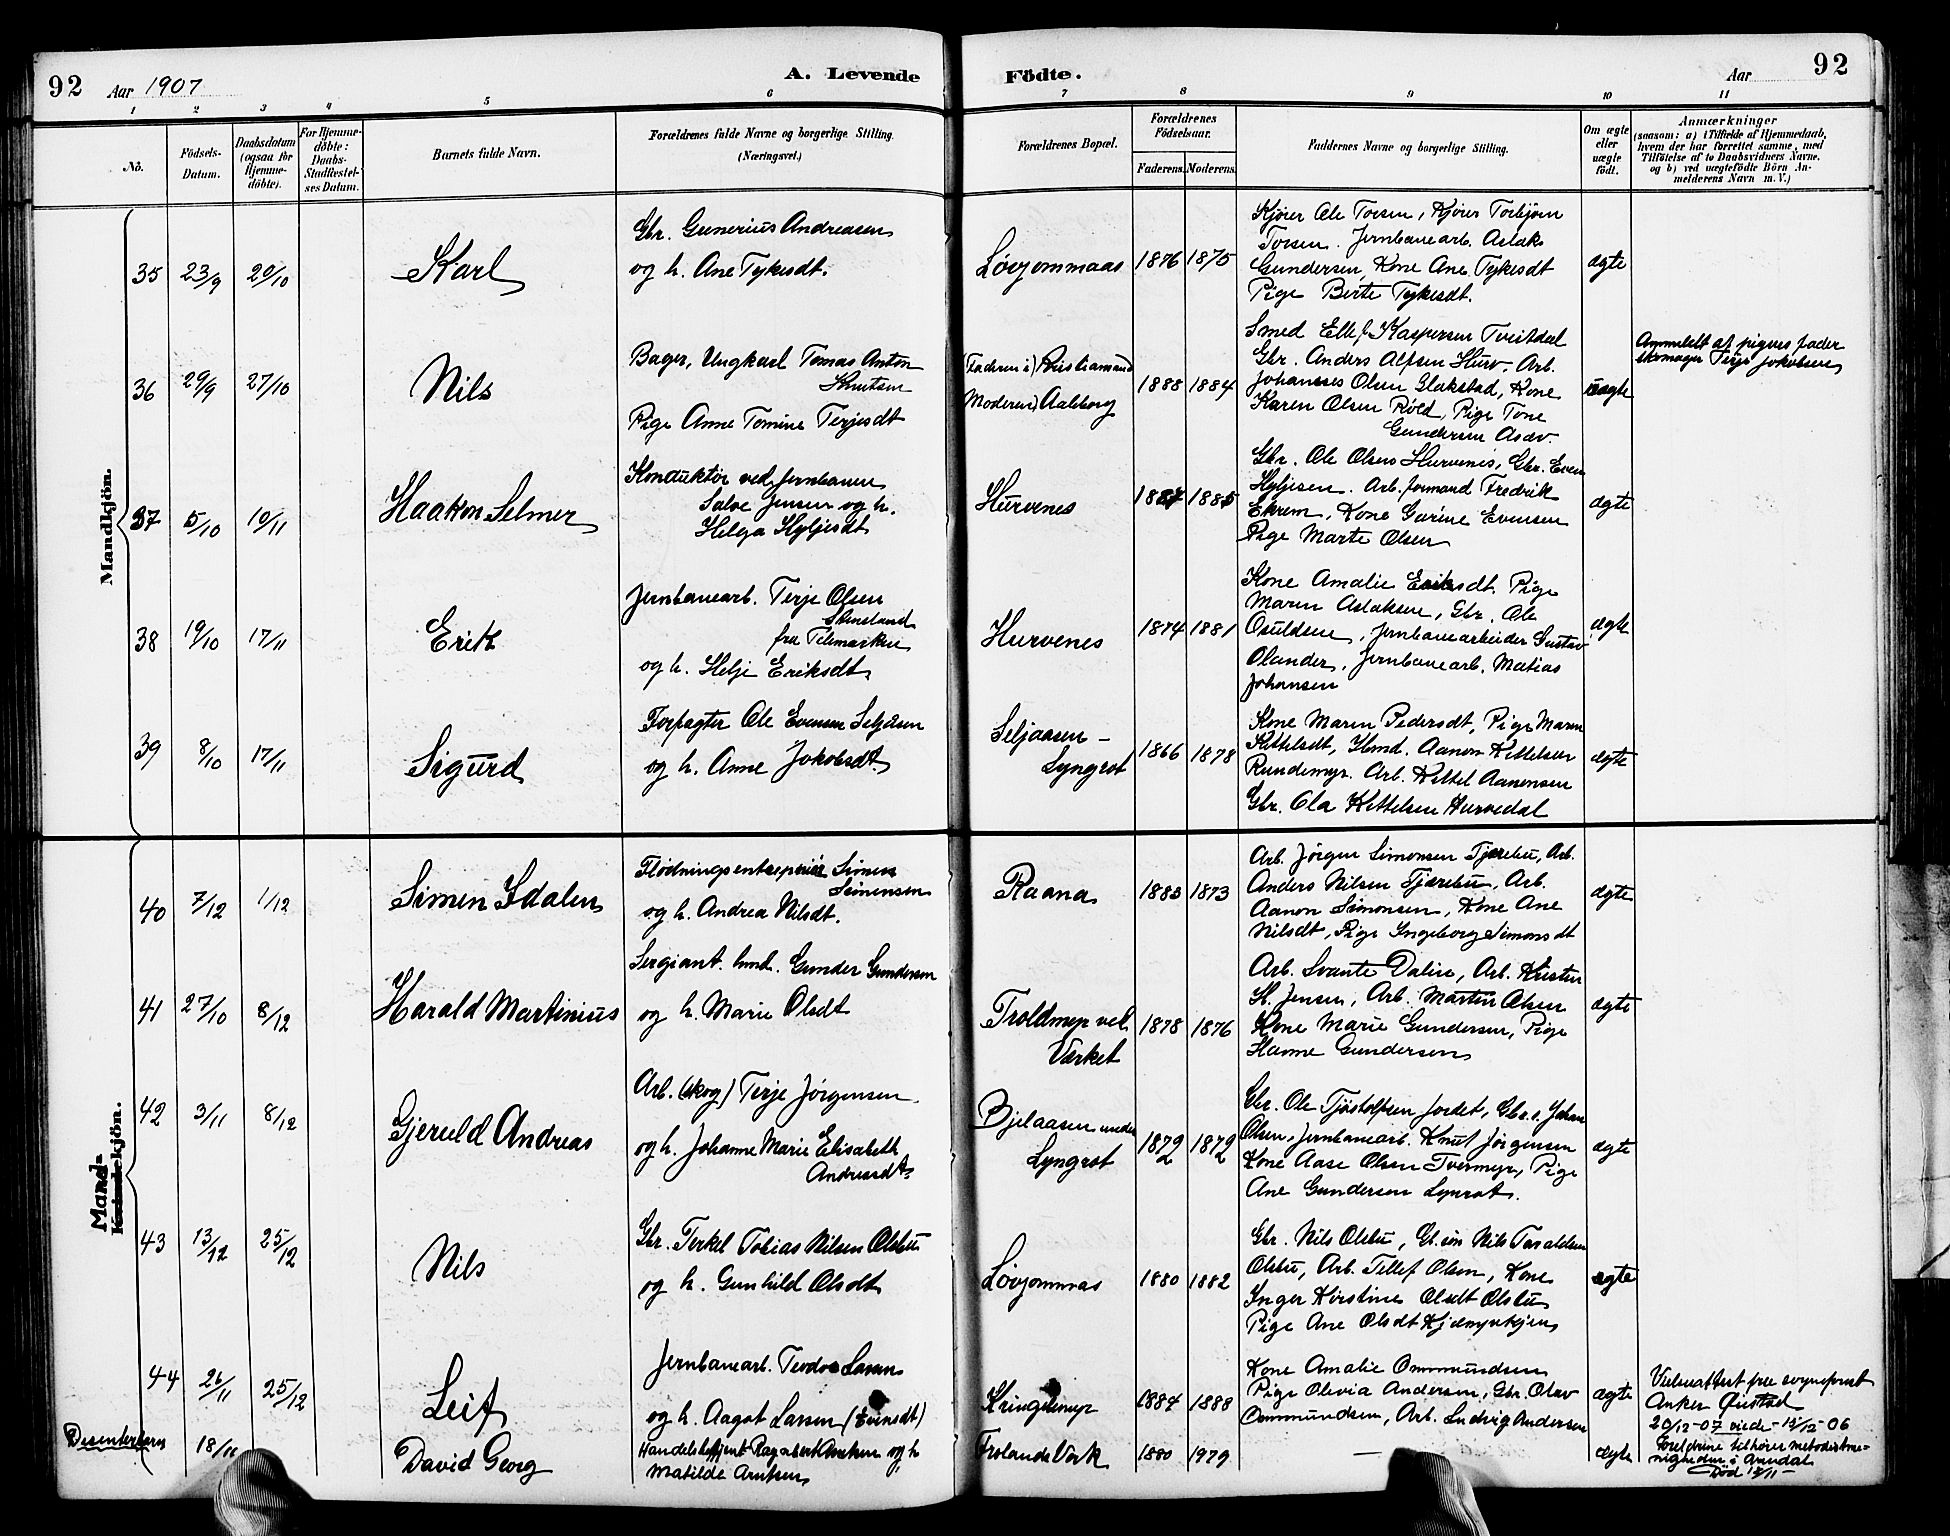 92 Aar 1907 A. Levende Födte. Aar 92
1 2 3 4 5 6 7 8 9 10 11
No.
Födsels-Datum.
Daabsdatum (ogsaa for Hjemme-döbte).
For Hjemme-döbte: Daabs-Stadfæstel-ses Datum.
Barnets fulde Navn.
Forældrenes fulde Navne og borgerlige Stilling.
(Næringsvei.)
Forældrenes Bopæl.
Forældrenes Födselsaar.
Faderens. Moderens.
Faddernes Navne og borgerlige Stilling.
Om ægte eller uægte födt.
Anmærkninger
(saasom: a) i Tilfælde af Hjemmedaab,
hvem der har forrettet samme, med
Tilföielse af to Daabsvidners Navne,
og b) ved uægtefödte Börn An-
melderens Navn m. V.)
Mandkjön.
35 23/9 20/10 Karl
Gbr. Gunerius Andreasen
og h. Ane Tykesdt.
Løvjommaas 1876 1875
Kjører Ole Torsen, Kjører Torbjørn
Torsen. Jernbanearb. Aslak
Gundersen, Kone Ane Tykesdt
Pige Berte Tykesdt.
ægte
36 29/9 27/10 Nils
Bager, Ungkarl Tomas Anton
Knutsen
Pige Anne Tomine Terjesdt
(Faderen i) Kristiansand
Moderen) Aalborg
1888 1884
Smed Ellef Kaspersen Tveitdal
Gbr. Anders Alfsen Hurv, Arb.
Johannes Olsen Glakstad, Kone
Karen Olsen Rold, Pige Tone
Gundersen Asdv
uægte
Anmeldt af pigens fader
skomager Terje Jakobsen
37 5/10 10/11 Haakon Selmer
Konduktør ved Jernbanen
Salve Jensen og h.
Helga Kyljesdt
Hurvenes 1884 1885
Gbr. Ole Olsen Hurvenes, Gbr. Even
Kyljesen. Arb. formand Fredrik
Ekrem, Kone Gurine Evensen
Pige Marte Olsen
ægte
38 19/10 17/11 Erik
Jernbanearb. Terje Olsen
Stensland
fra Telemarken
og h. Helje Eriksdt
Hurvenes 1874 1881
Kone Amalie Eriksdt. Pige
Maren Aslaksen, Gbr. Ole
Osuldsen, Jernbanearbeider Gustav
Olander, Jernbanearb. Matias
Johansen
ægte
39 8/10 17/11 Sigurd
Forpagter Ole Evensen Seljåsen
og h. Anne Jakobsdt.
Seljaasen -
Lyngrot
1866 1878
Kone Maren Pedersdt, Pige Maren
Kittelsdt, Hmd. Aanon Kittelsen
Rundemyr. Arb. Kittel Aanonsen
Gbr. Ola Kittelsen Hurvedal
ægte
Mand-
Kvindekjön.
40 7/12 1/12 Simen Idalen
Flødningsentreprenør Simen
Simensen
og h. Andrea Nilsdt.
Raana 1883 1873
Arb. Jørgen Simonsen Tjærebu, Arb.
Anders Nilsen Tjærebu, Arb.
Aanon Simonsen, Kone Ane
Nilsdt, Pige Ingeborg Simonsdt
ægte
41 27/10 8/12 Harald Martinius
Sergiant. hmd. Gunder Gundersen
og h. Marie Olsdt
Troldmyr ved
Værket
1878 1876
Arb. Svante Dalin, Arb. Kristen
H. Jensen, Arb. Martin Olsen
Kone Marie Gundersen, Pige
Hanne Gundersen
ægte
42 3/11 8/12 Gjeruld Andreas
Arb. (skog) Terje Jørgensen
og h. Johanne Marie Elisabeth
Andreasdt
Bjelaasen under
Lyngrot
1872 1872
Gbr. Ole Tjøstolfsen Jordet, Gbr.s. Johan
Olsen, Jernbanearb. Knut Jørgensen
Kone Aase Olsen Tvermyr, Pige
Ane Gundersen Lynrot.
ægte
43 13/12 25/12 Nils
Gbr. Terkel Tobias Nilsen Olsbu
og h. Gunhild Olsdt
Løvjommas 1880 1882
Gbr. Nils Olsbu, Gb. søn Nils Taraldsen
Olsbu, Arb. Tellef Olsen, Kone
Inger Kirstine Olsdt Olsbu
Pige Ane Olsdt
ægte
44 26/11 25/12 Leif
Jernbanearb. Teodor Larsen
og h. Aagot Larsen (Evensdt)
Kringlemyr 1884 1888
Kone Amalie Ommundsen
Pige Olivia Andersen, Gbr. Olav
Ommundsen, Arb. Ludvig Andersen
ægte
Vielsesattest fra sogneprest
Anker Øiestad
20/12-07 viede - 15/12-06
Dissenterbarn 18/11 David Georg
Handelsbetjent Arntsen og h
Matilde Arntsen
Frolands Værk 1880 1979
—
ægte
Foreldrene tilhører metodistme-
nigheden i Arendal
Død